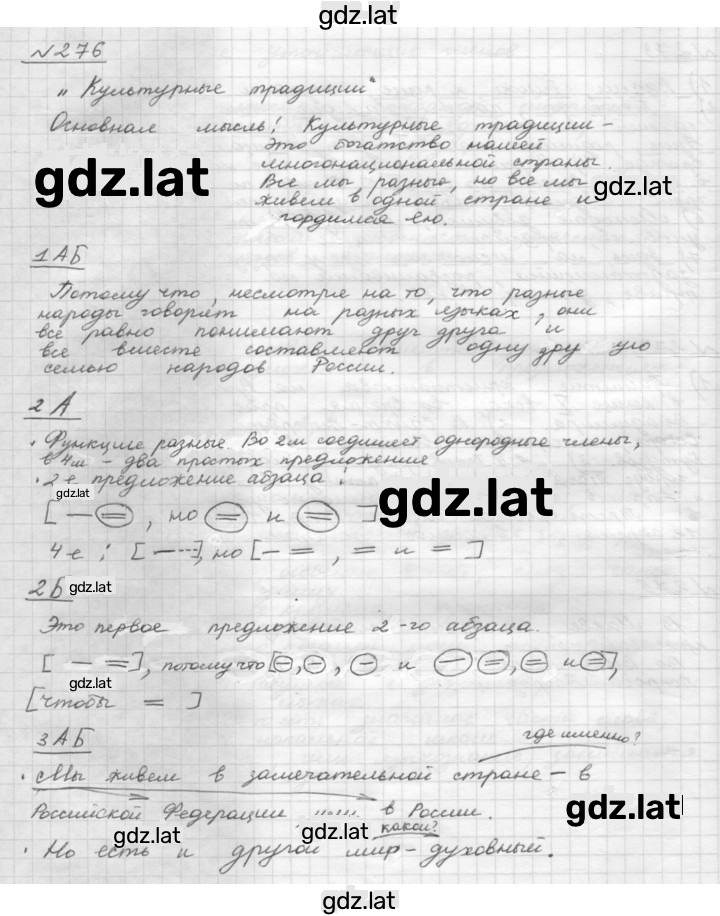 gdz.lat
№276
"Культурные традиции"
Основная мысль: Культурные традиции –
это богатство нашей
многонациональной страны.
gdz.lat
Все мы разные, но все мы
gdz.lat
живем в одной стране и
гордимся ею.
1АБ
Потому что, несмотря на то, что разные
народы говорят на разных языках, они
все равно понимают друг друга и
все вместе составляют одну
семью народов России.
2 А
• Функции разные. Во 2м соединяет однородные члены,
в 4м – два простых предложение
• 2-е предложение абзаца:
gdz.lat
gdz.lat
[ — = , но = и = ]
4-е : [ — ---], но [ — = , = и = ]
2Б gdz.lat
Это первое предложение 2-го абзаца.
[ — = ], потому что [ — , — , — и — = , = и = ],
gdz.lat
[чтобы = ]
3АБ
где именно?
• Мы живем в замечательной стране – в
Российской Федерации в России.
gdz.lat
gdz.lat
gdz.lat
какой?
• Но есть и другой мир – духовный.
gdz.lat